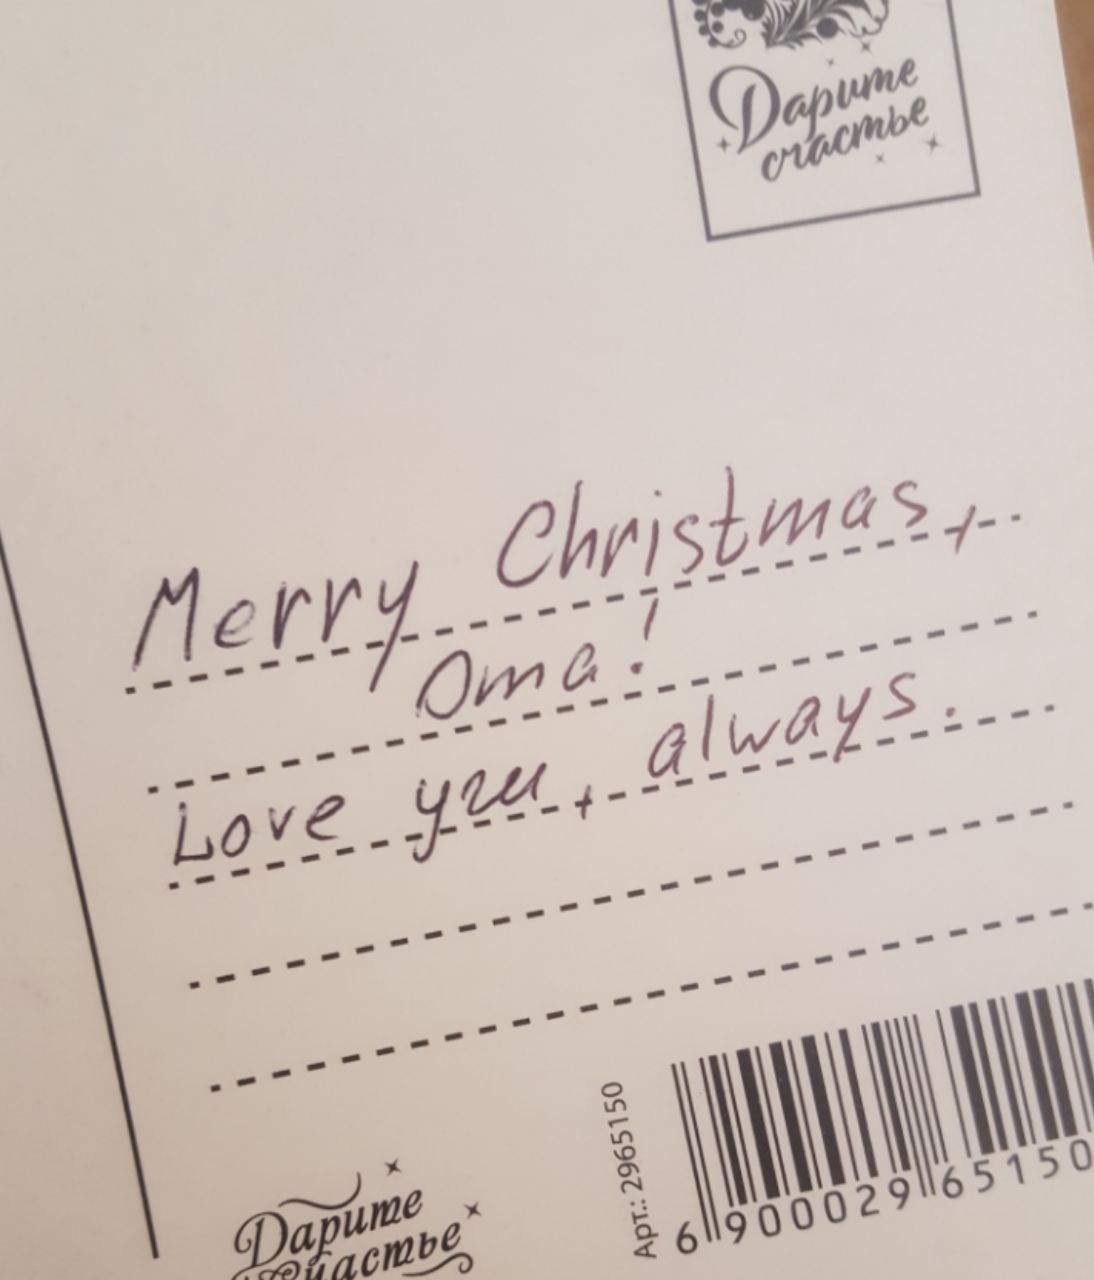 Дарите
счастье
Merry Christmas,
Oma!
Love you, always.
Арт.: 2965150
6 900029 65150
Дарите
Счастье